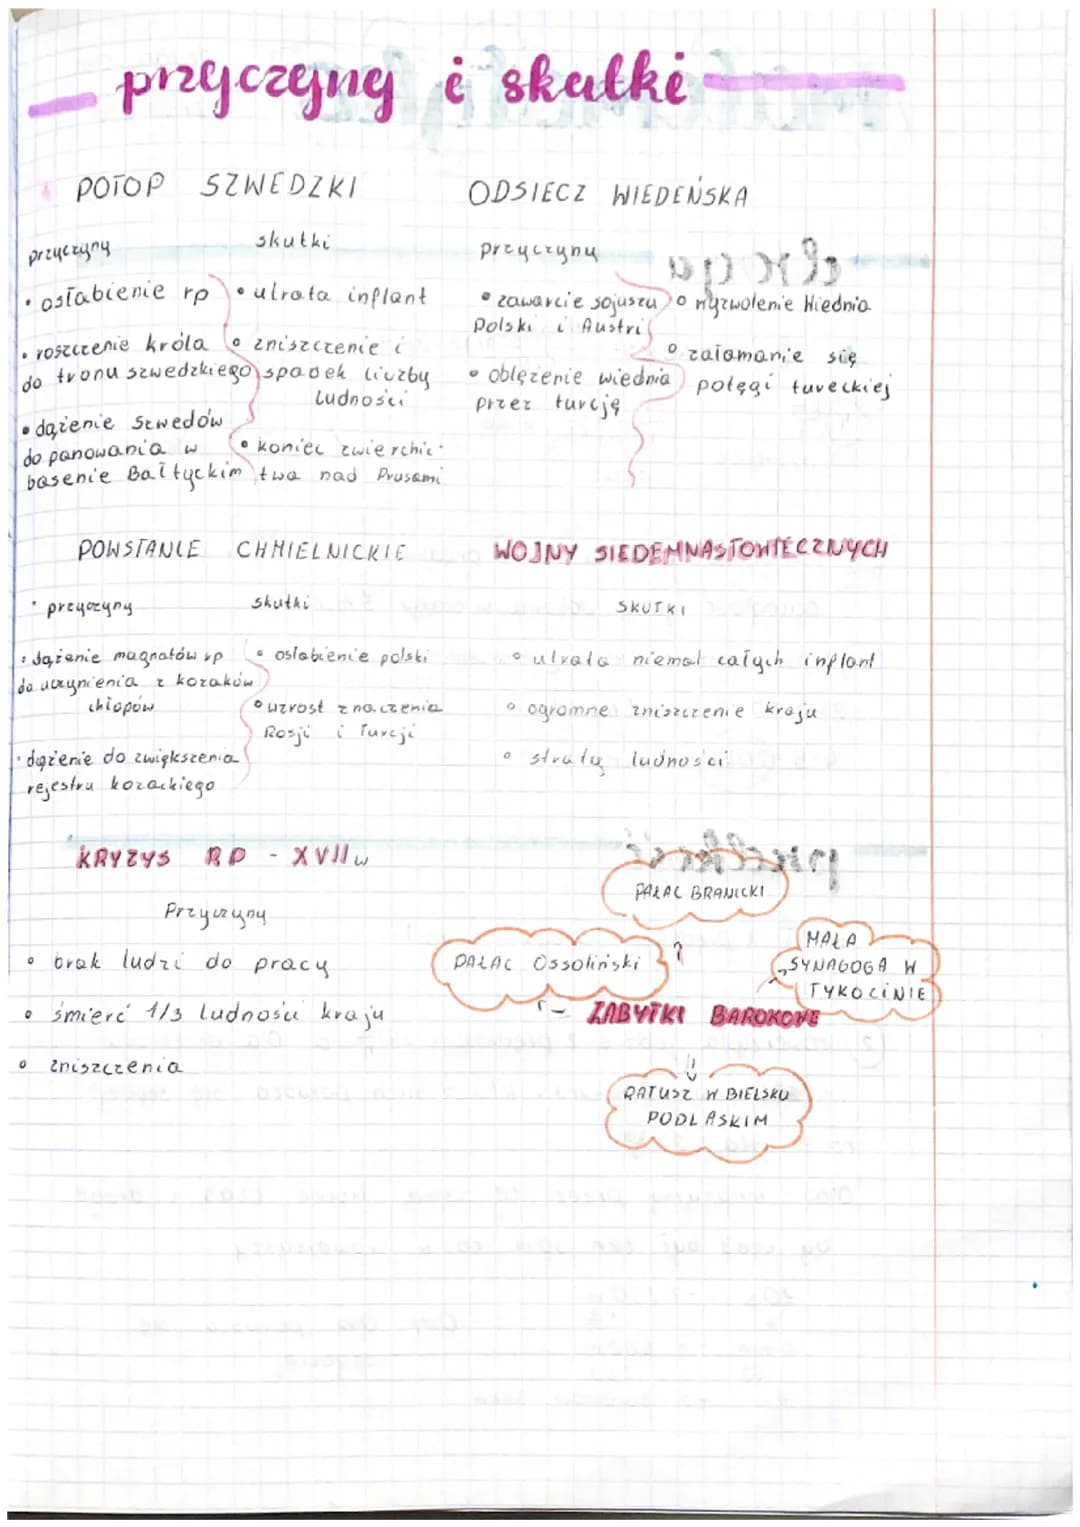 przyczyny i skutki
POTOP SZWEDZKI
przyczyny
skutki
• osłabienie rp
• roszczenie króla
do tronu szwedzkiego
• dążenie Szwedów
do panowania w
basenie Bałtyckim
• utrata inflant
• zniszczenie i
spadek liczby
ludności
• koniec zwierchnic-
twa nad Prusami
ODSIECZ WIEDEŃSKA
przyczyny
• zawarcie sojuszu
Polski i Austri
• oblężenie wiednia
przez turcję
• wyzwolenie Wiednia
• załamanie się
potęgi tureckiej
POWSTANIE CHMIELNICKIE
• przyczyny
skutki
• dążenie magnatów rp
do uczynienia z kozaków
chłopów
• dążenie do zwiększenia
rejestru kozackiego
• osłabienie polski
• wzrost znaczenia
Rosji i Turcji
WOJNY SIEDEMNASTOWIECZNYCH
SKUTKI
• utrata niemal całych inflant
• ogromne zniszczenie kraju
• straty ludności
KRYZYS RP - XVII w
Przyczyny
• brak ludzi do pracy
• śmierć 1/3 ludności kraju
• zniszczenia
PAŁAC BRANICKI
PAŁAC Ossoliński
MAŁA
SYNAGOGA W
TYKOCINIE
ZABYTKI BAROKOWE
RATUSZ W BIELSKU
PODLASKIM